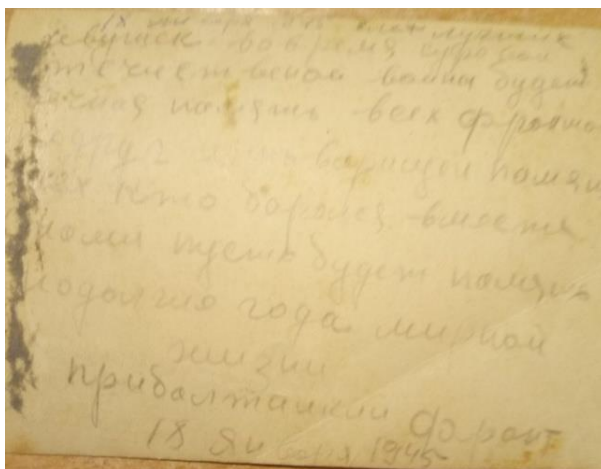 18 января
девушек во время
отечественой войны будет
вечная память всех фронто
подруг памя
всех кто боролся вместе
снами пусть будет память
подолгие года мирной
жизни
прибалтийкий фронт
18 Января 1945